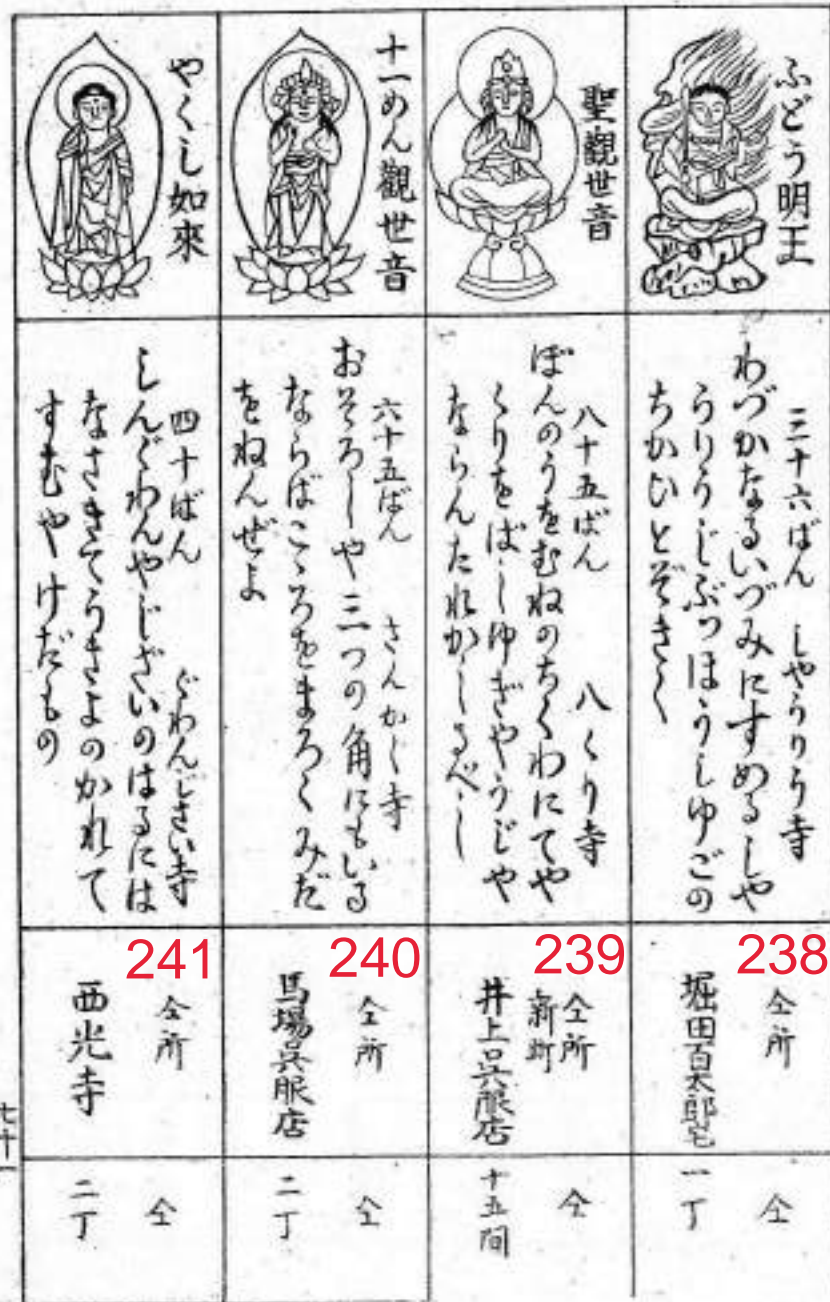 ふどう明王
三十六ばん しやうりう寺
わづかなるいづみにすめるしや
うりうじぶつほうしゆごの
ちかひとぞきく
238
仝所
堀田百太郎宅
仝
一丁
聖觀世音
八十五ばん 八くり寺
ぼんのうをむねのちくわにてや
くりをばしゆぎやうじや
ならんたれかしるべし
239
仝所
新町
井上呉服店
仝
十五間
十一めん觀世音
六十五ばん さんかく寺
おそろしや三つの角にもいる
ならばこゝろをまろくみだ
をねんぜよ
240
仝所
馬場呉服店
仝
二丁
やくし如來
四十ばん ぐわんじざい寺
しんぐわんやじざいのはるには
なさきてうきよのがれて
すむやけだもの
241
仝所
西光寺
仝
二丁
七十一